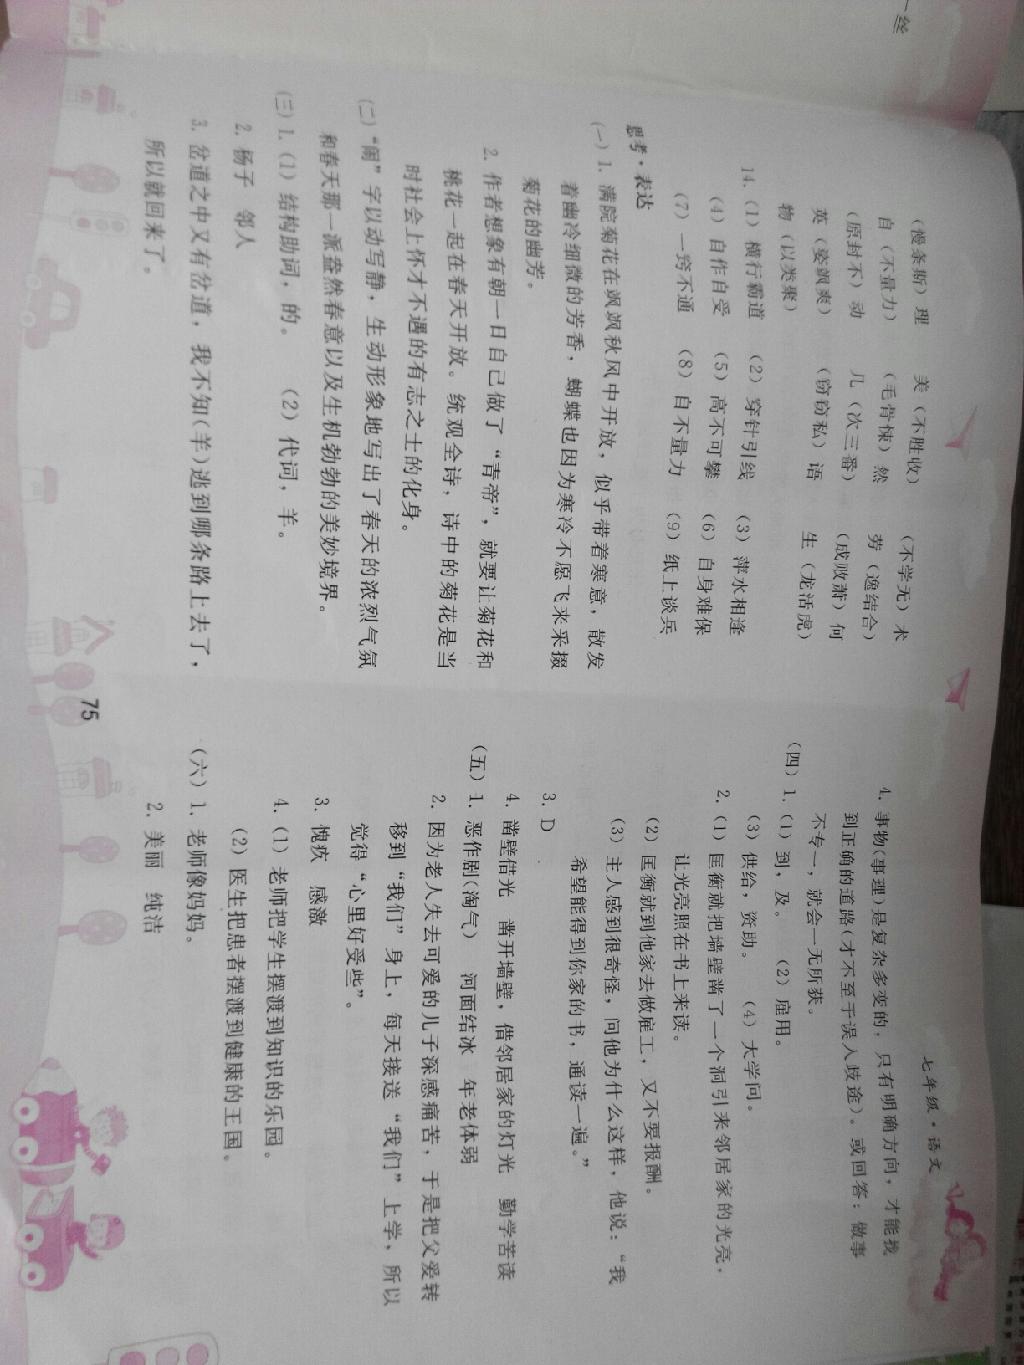 一丝
七年级·语文
(慢条斯)理 美(不胜收) (不学无)术
自(不量力) (毛骨悚)然 劳(逸结合)
(原封不)动 几(次三番) (成败萧)何
英(姿飒爽) (窃窃私)语 生(龙活虎)
物(以类聚)
14. (1)横行霸道 (2)穿针引线 (3)萍水相逢
(4)自作自受 (5)高不可攀 (6)自身难保
(7)一窍不通 (8)自不量力 (9)纸上谈兵
思考·表达
(一)1. 满院菊花在飒飒秋风中开放，似乎带着寒意，散发
着幽冷细微的芳香，蝴蝶也因为寒冷不愿飞来采掇
菊花的幽芳。
2. 作者想象有朝一日自己做了“青帝”，就要让菊花和
桃花一起在春天开放。统观全诗，诗中的菊花是当
时社会上怀才不遇的有志之士的化身。
(二)“闹”字以动写静，生动形象地写出了春天的浓烈气氛
和春天那一派盎然春意以及生机勃勃的美妙境界。
(三)1. (1)结构助词，的。 (2)代词，羊。
2. 杨子 邻人
3. 岔道之中又有岔道，我不知(羊)逃到哪条路上去了，
所以就回来了。
4. 事物(事理)是复杂多变的，只有明确方向，才能找
到正确的道路(才不至于误入歧途)。或回答：做事
不专一，就会一无所获。
(四)1. (1)到，及。 (2)雇用。
(3)供给，资助。 (4)大学问。
2. (1)匡衡就把墙壁凿了一个洞引来邻居家的光亮，
让光亮照在书上来读。
(2)匡衡就到他家去做雇工，又不要报酬。
(3)主人感到很奇怪，问他为什么这样，他说：“我
希望能得到你家的书，通读一遍。”
3. D
4. 凿壁借光 凿开墙壁，借邻居家的灯光 勤学苦读
(五)1. 恶作剧(淘气) 河面结冰 年老体弱
2. 因为老人失去可爱的儿子深感痛苦，于是把父爱转
移到“我们”身上，每天接送“我们”上学，所以
觉得“心里好受些”。
3. 愧疚 感激
4. (1)老师把学生摆渡到知识的乐园。
(2)医生把患者摆渡到健康的王国。
(六)1. 老师像妈妈。
2. 美丽 纯洁
75